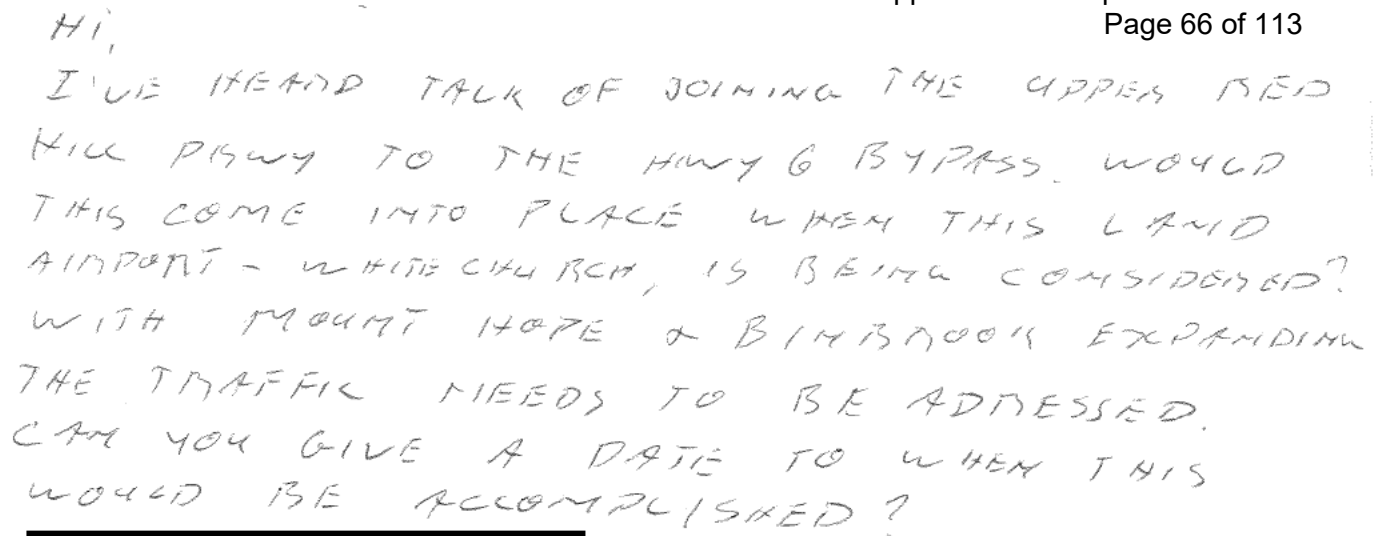 Page 66 of 113
HI,
I'VE HEARD TALK OF JOINING THE UPPER RED
HILL PKWY TO THE HWY 6 BYPASS. WOULD
THIS COME INTO PLACE WHEN THIS LAND
AIRPORT - WHITECHURCH, IS BEING CONSIDERED?
WITH MOUNT HOPE & BINBROOK EXPANDING
THE TRAFFIC NEEDS TO BE ADRESSED.
CAN YOU GIVE A DATE TO WHEN THIS
WOULD BE ACCOMPLISHED?